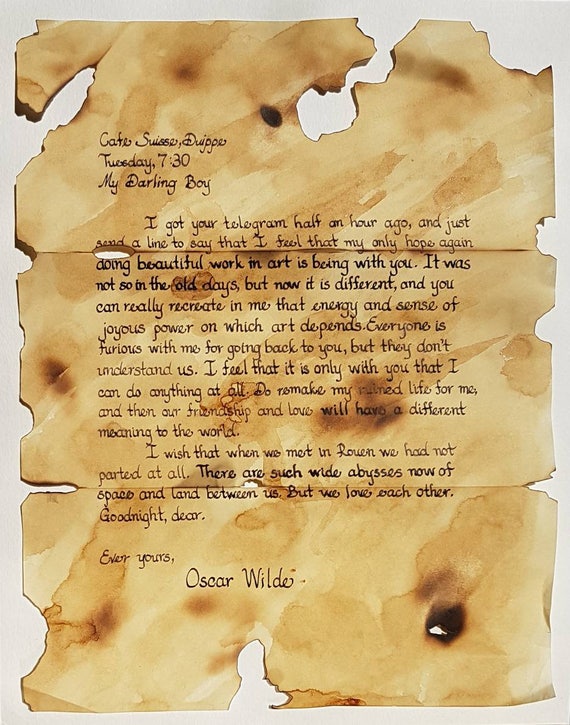 Cafe Suisse, Duippe
Tuesday, 7:30
My Darling Boy
I got your telegram half an hour ago, and just
send a line to say that I feel that my only hope again
doing beautiful work in art is being with you. It was
not so in the old days, but now it is different, and you
can really recreate in me that energy and sense of
joyous power on which art depends. Everyone is
furious with me for going back to you, but they don't
understand us. I feel that it is only with you that I
can do anything at all. Do remake my ruined life for me,
and then our friendship and love will have a different
meaning to the world.
I wish that when we met in Rouen we had not
parted at all. There are such wide abysses now of
space and land between us. But we love each other.
Goodnight, dear.
Ever yours,
Oscar Wilde